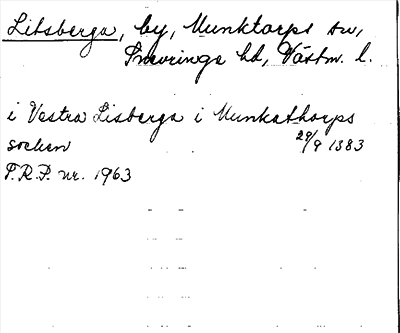 Litsberga, by, Munktorps sn,
Snevringe hd, Västm. l.
i Vestra Lisberga i Munkathorps
socken 29/9 1383
P.R.P. nr. 1963